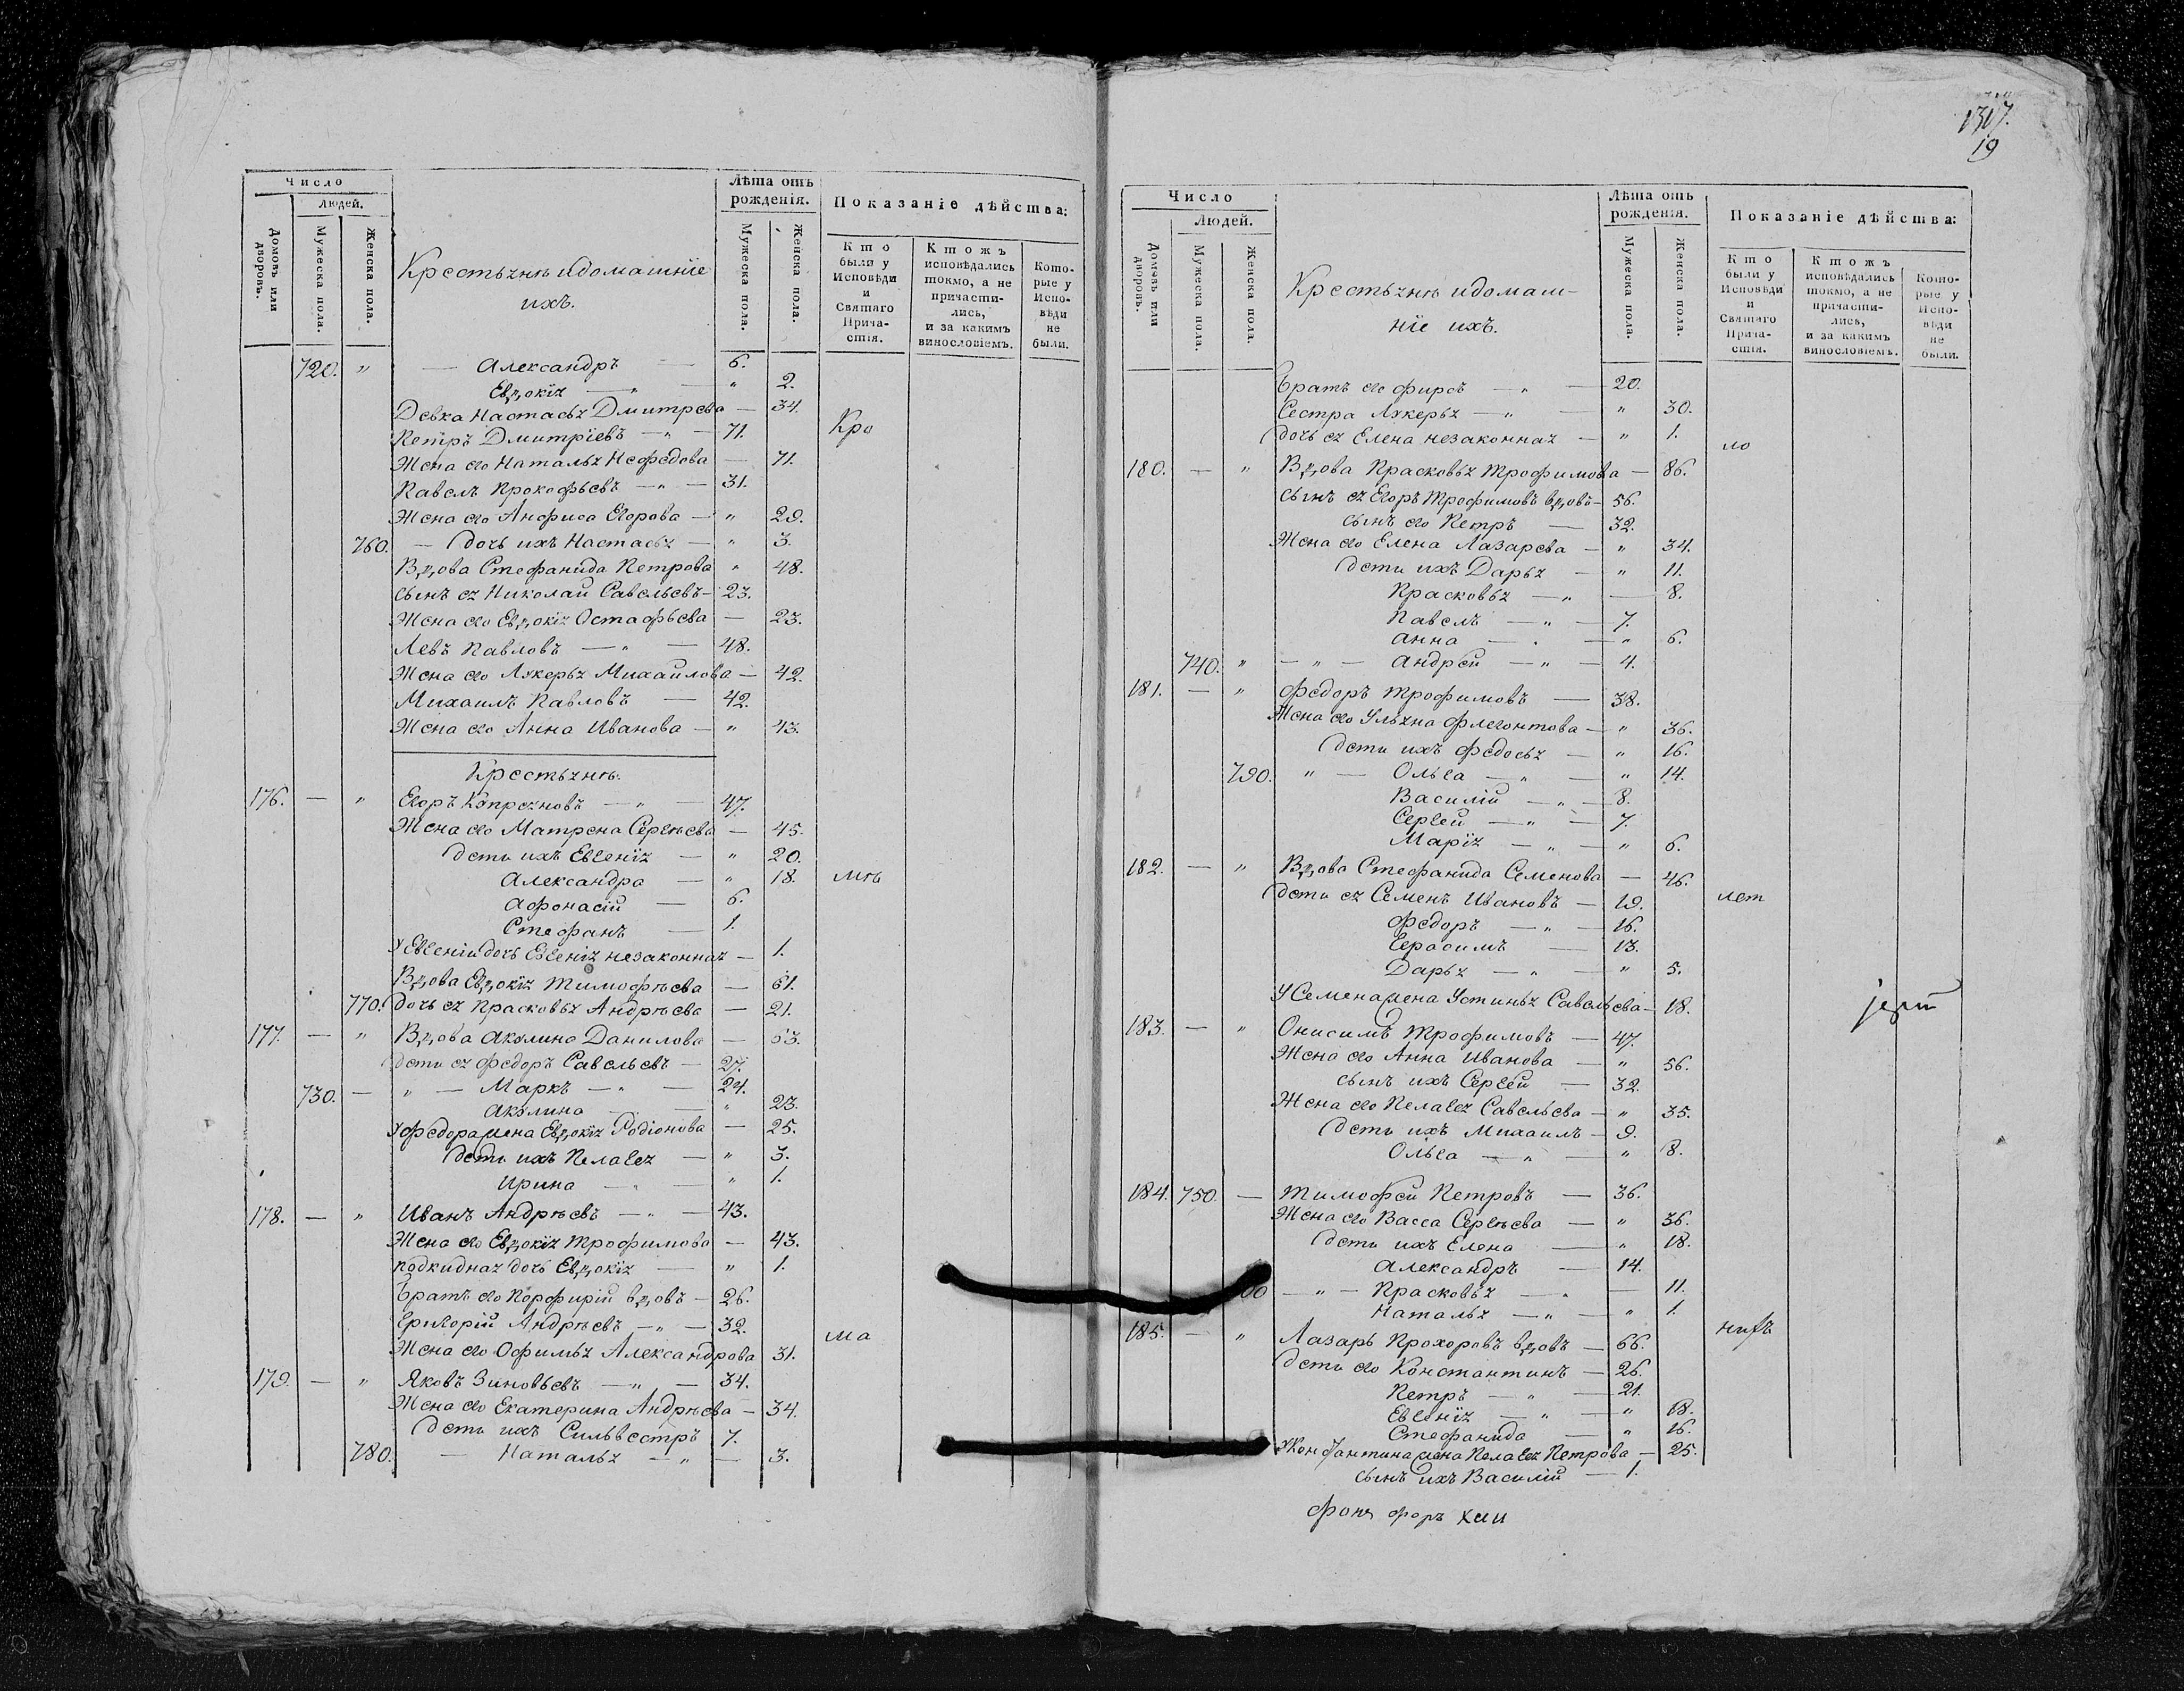 Число
Людей.
Домовъ или дворовъ.
Мужеска пола.
Женска пола.
Крестьянѣ и домашніе
ихъ.
Лѣта отъ рожденія.
Мужеска пола.
Женска пола.
Показаніе дѣйства:
Кто были у Исповѣди и Святаго Причастія.
Ктожъ исповѣдались токмо, а не причастились, и за какимъ винословіемъ.
Которые у Исповѣди не были.
720. " — Александръ — 6.
Евдокія — " — " 2.
Девка Настасья Дмитрева — 34.
Петръ Дмитріевъ — " — 71. Кро
Жена его Наталья Нефедова — 71.
Павелъ Прокофьевъ — " — 31.
Жена его Анфиса Егорова — " 29.
760. — дочь ихъ Настасья — " 3.
Вдова Стефанида Петрова " 48.
сынъ ея Николай Савельевъ — 23.
Жена его Евдокія Остафьева — 23.
Левъ Павловъ — " — 48.
Жена его Лукерья Михайлова — 42.
Михаилъ Павловъ — 42.
Жена его Анна Иванова — " 43.
Крестьянѣ.
176. — " Егоръ Купреяновъ — " — 47.
Жена его Матрена Сергѣева — 45.
дети ихъ Евгенія — " 20.
Александра — " 18. мѣ
Афонасій — 6.
Стефанъ — 1.
У Евгеніи дочь Евгенія незаконная — 1.
Вдова Евдокія Тимофѣева — 61.
770. дочь ея Прасковья Андрѣева — 21.
177. — " Вдова Акулина Данилова — 63.
дети ея Федоръ Савельевъ — 27.
730. — " — Маркъ — " — 24.
Акулина — " 23.
У Федора жена Евдокія Родіонова — 25.
дети ихъ Пелагея — " 3.
Ирина — " — " 1.
178. — " Иванъ Андрѣевъ — " — 43.
Жена его Евдокія Трофимова — 43.
подкидная дочь Евдокія — " 1.
Братъ его Порфирій вдовъ — 26.
Григорій Андрѣевъ — " — 32. ма
Жена его Офимья Александрова 31.
179. — " Яковъ Зиновьевъ — " — 34.
Жена его Екатерина Андрѣева — 34.
дети ихъ Сильвестръ 7.
780. — Наталья — " — 3.
1317.
19
Число
Людей.
Домовъ или дворовъ.
Мужеска пола.
Женска пола.
Крестьянѣ и домаш-
ніе ихъ.
Лѣта отъ рожденія.
Мужеска пола.
Женска пола.
Показаніе дѣйства:
Кто были у Исповѣди и Святаго Причастія.
Ктожъ исповѣдались токмо, а не причастились, и за какимъ винословіемъ.
Которые у Исповѣди не были.
Братъ его Фирсъ — " — 20.
Сестра Лукерья — " — " 30.
дочь ея Елена незаконная — " 1. ло
180. — " Вдова Прасковья Трофимова — 86.
сынъ ея Егоръ Трофимовъ вдовъ — 56.
сынъ его Петръ — 32.
Жена его Елена Лазарева — " 34.
дети ихъ Дарья — " 11.
Прасковья — " — 8.
Павелъ — " — 7.
Анна — " — " 6.
740. " — " — Андрей — " — 4.
181. — " Федоръ Трофимовъ — 38.
Жена его Ульяна Флегонтова — " 36.
дети ихъ Федосья — " 16.
790. " — Ольга — " — " 14.
Василій — " — 8.
Сергей — " — 7.
Марія — " — " 6.
182. — " Вдова Стефанида Семенова — 46.
дети ея Семенъ Ивановъ — 19. лет
Федоръ — " — 16.
Герасимъ — 13.
Дарья — " — " 5.
У Семена жена Устинья Савельева — 18.
183. — " Онисимъ Трофимовъ — 47.
Жена его Анна Иванова — " 56.
сынъ ихъ Сергей — 32.
Жена его Пелагея Савельева — " 35.
дети ихъ Михаилъ — 9.
Ольга — " — " 8.
184. 750. — Тимофей Петровъ — 36.
Жена его Васса Сергѣева — " 36.
дети ихъ Елена — " 18.
Александръ — 14.
00 — " — Прасковья — " — 11.
Наталья — " — " 1.
185. — " Лазарь Прохоровъ вдовъ — 66.
дети его Константинъ — 26.
Петръ — " — 21.
Евгенія — " — " 18.
Стефанида — " 16.
У Константина жена Пелагея Петрова — 25.
сынъ ихъ Василій — 1.